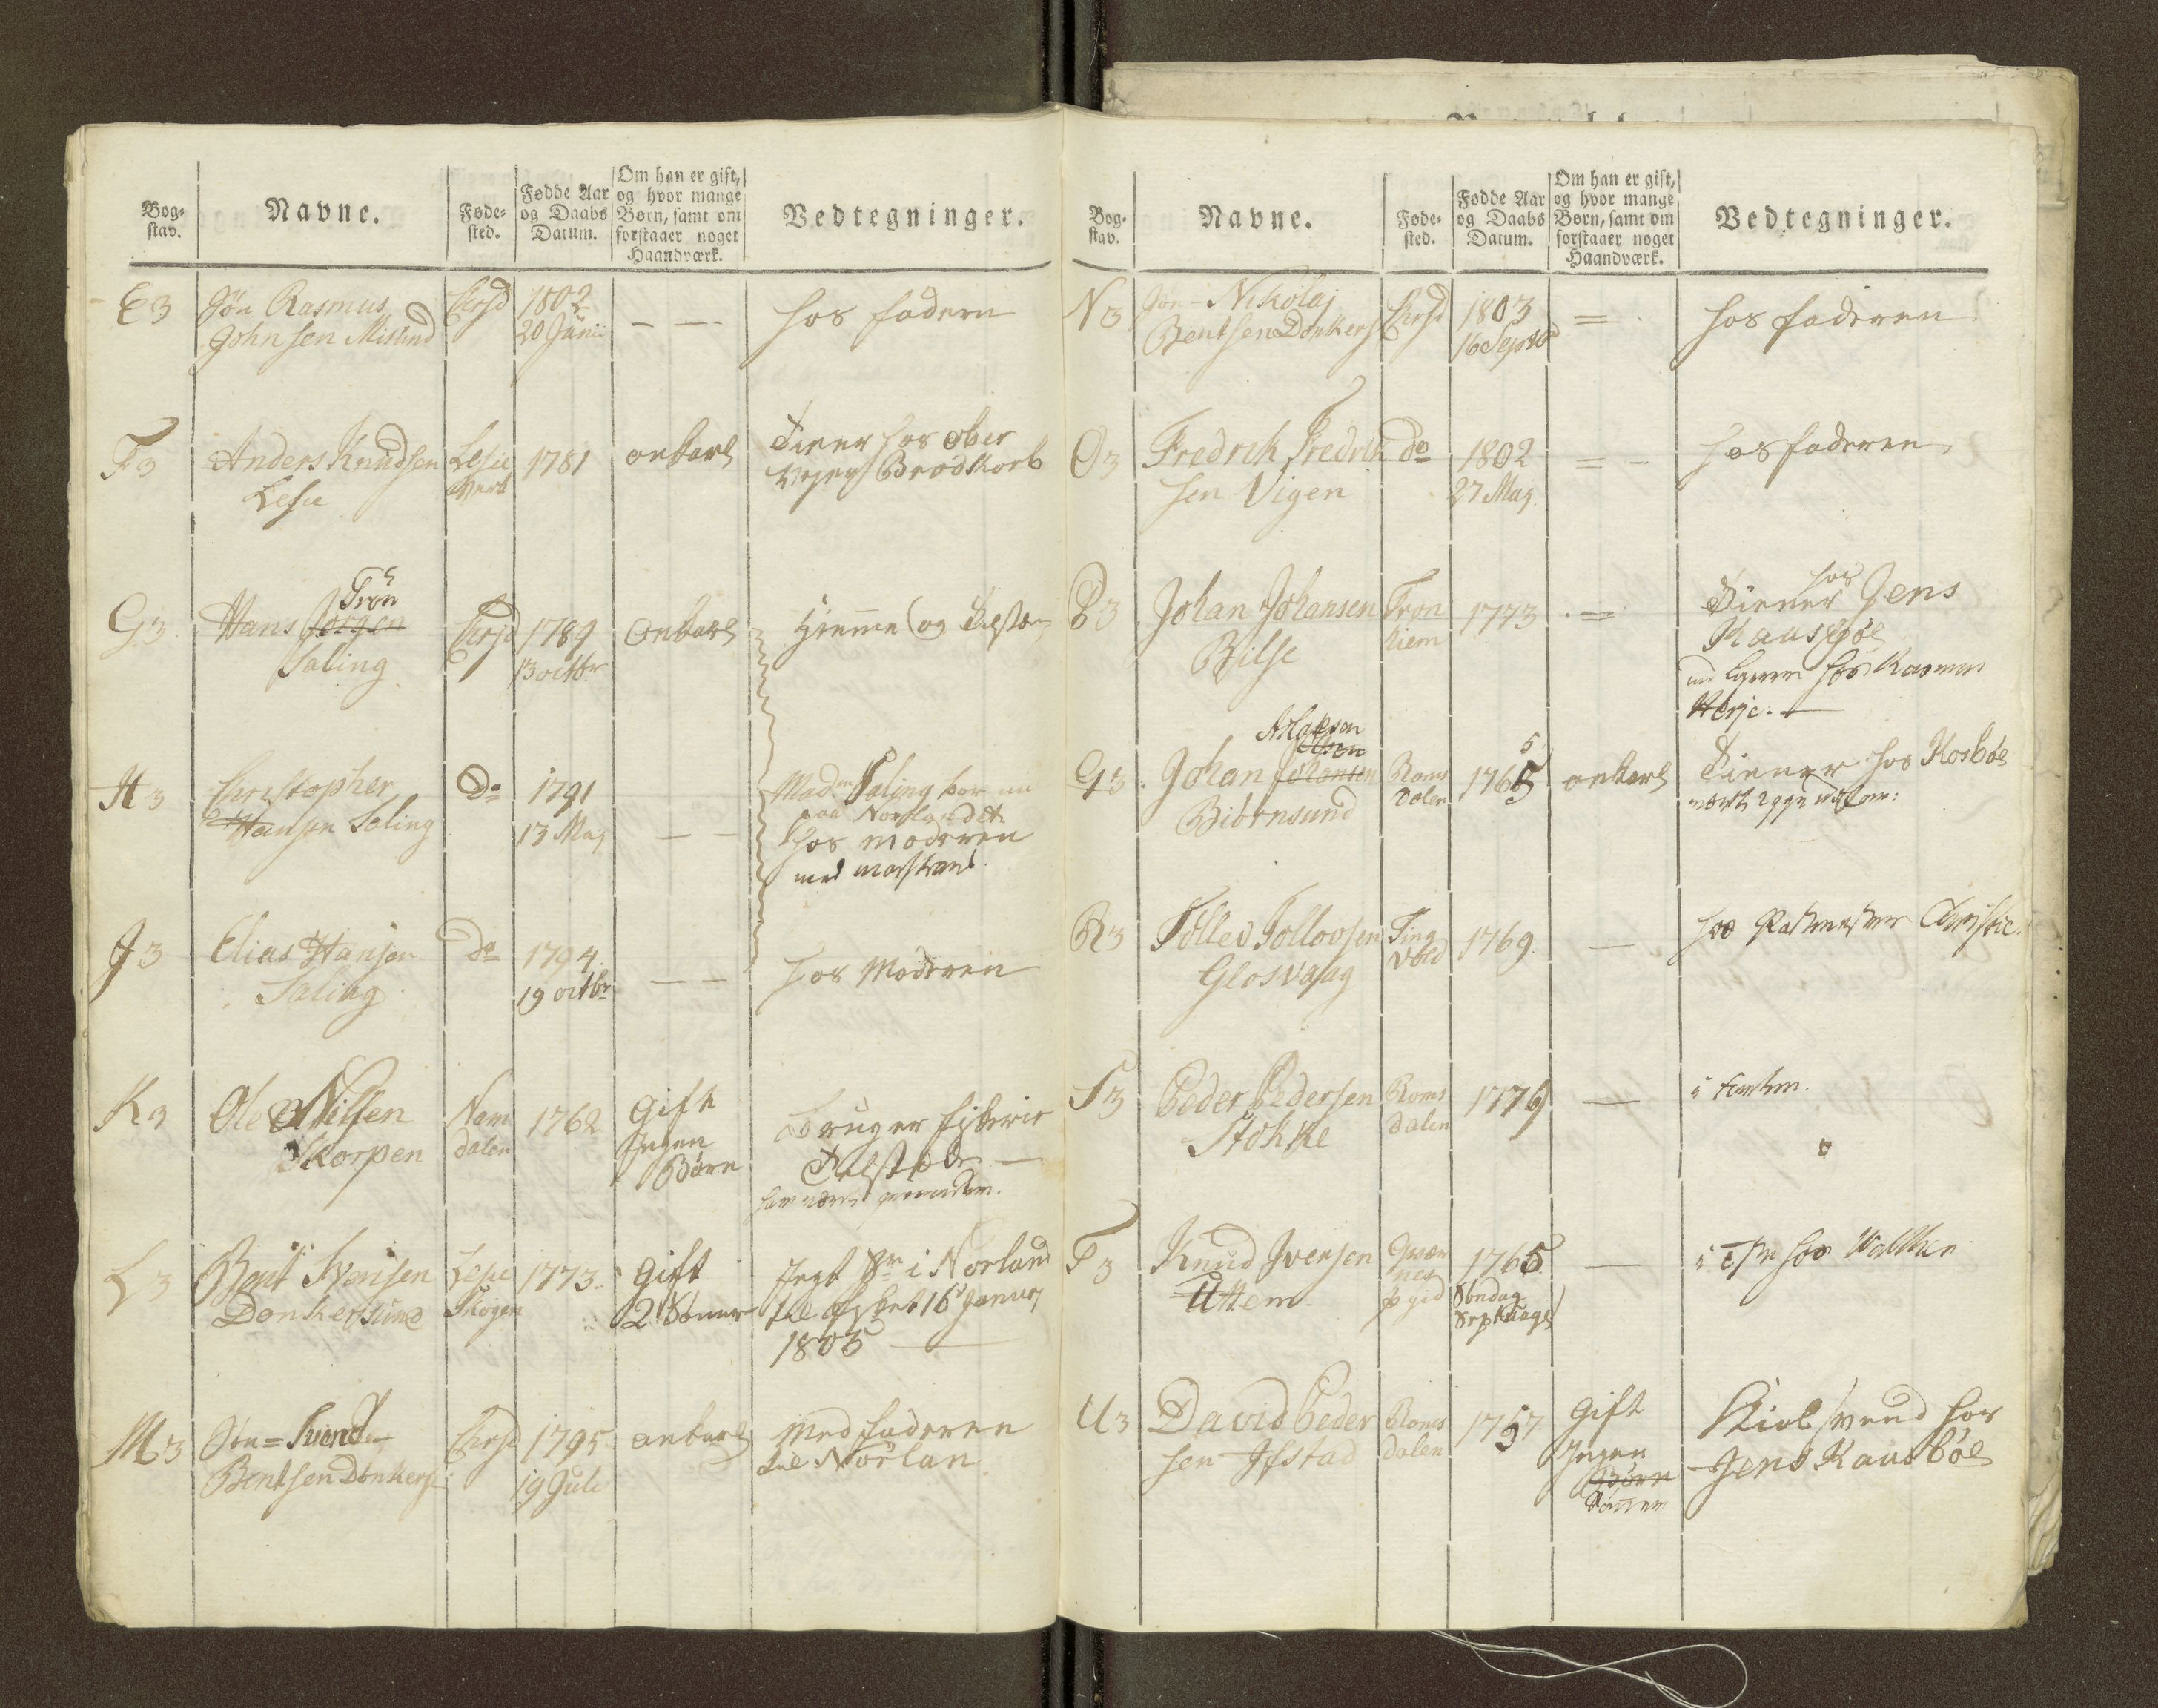 Bog-
stav.
Navne.
Føde-
sted.
Fødde Aar
og Daabs
Datum.
Om han er gift,
og hvor mange
Børn, samt om
forstaaer noget
Haandværk.
Vedtegninger.
E3
Jön Rasmus
Johnsen Misund
Chrsd
1802
20 Junii
— —
hos fadern
F3
Anders Knudsen
Lesie
Lesie
1781
onkarl
Tiener hos ober
Brodkorb
G3
Trön
Hans Jörgen
Saling
Chrsd
1789
13 octbr
onkarl
Hiemme og
H3
Christopher
Hansen Saling
Do
1791
13 Maj
— —
Madm Saling
paa Norlandet
hos moderen
J3
Elias Hansen
Saling
Do
1794
19 octbr
— —
hos Moderen
K3
Ole Nilsen
Skorpen
Nam
dalen
1762
Gift
Ingen
Börn
Bruger fiskerie
Tilstæde —
L3
Bent Svensen
Donkersund
Lesie
Skogen
1773
Gift
2 Sönner
i Norland
16 Januar
1805
M3
Jön = Svend
Bentsen Donkers
Chrsd
1795
19 Juli
onkarl
Med faderen
til Norlan
Bog-
stav.
Navne.
Føde-
sted.
Fødde Aar
og Daabs
Datum.
Om han er gift,
og hvor mange
Børn, samt om
forstaaer noget
Haandværk.
Vedtegninger.
N3
Jön - Nikolaj
Bentsen Donkers
Chrsd
1803
16 Septbr
=
hos faderen
O3
Fredrik Fredrik
sen Vigen
do
1802
27 Maj
= -
hos faderen
P3
Johan Johansen
Bilse
Tron
hiem
1773
=
Tiener hos Jens
Kausböl
hos Rasmus
Herje. —
Q3
Aslaksen
Johan Johansen
Biörnsund
Roms
dalen
5
1765
onkarl
Tiener hos Kosböl
R3
Tollev Tollovsen
Glosvaag
Ting
vold
1769
—
hos Christie
S3
Peder Pedersen
Stokke
Roms
dalen
1776
—
T3
Knud Iversen
Uttem
1765
Söndag
—
hos
U3
David Peder
sen Ifstad
Roms
dalen
1757
Gift
Ingen
Börn
Sönner
svend hos
Jens Kausböl